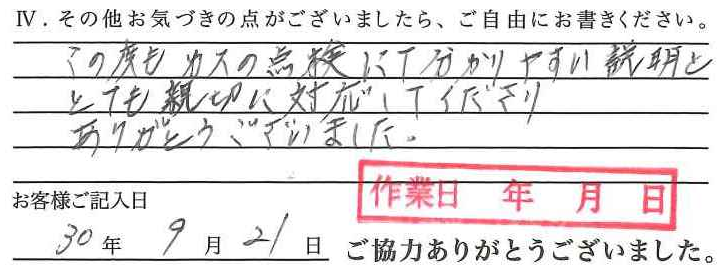 Ⅳ．その他お気づきの点がございましたら、ご自由にお書きください。
この度も ガスの点検にて分かりやすい説明と
とても親切に対応してくださり
ありがとうございました。
お客様ご記入日
作業日 年 月 日
30年 9月21日 ご協力ありがとうございました。